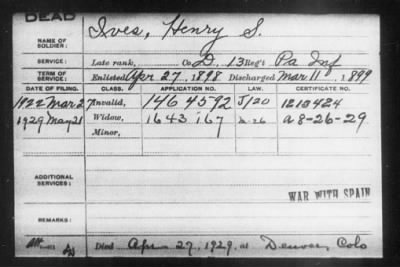 DEAD
NAME OF SOLDIER: Ives, Henry S.
SERVICE: Late rank, Co. D, 13 Reg't Pa Inf
TERM OF SERVICE: Enlisted Apr 27, 1898 Discharged Mar 11, 1899
DATE OF FILING. CLASS. APPLICATION NO. LAW. CERTIFICATE NO.
1922 Mar 27 Invalid, 1464592 J120 1213424
1929 May 21 Widow, 1643167 D-26 a8-26-29
Minor,
ADDITIONAL SERVICES:
WAR WITH SPAIN
REMARKS:
Died Apr 27, 1929, at Denver, Colo